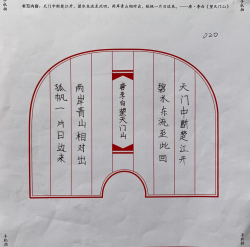 书写内容：天门中断楚江开，碧水东流至此回。两岸青山相对出，孤帆一片日边来。——唐·李白《望天门山》
020
天门中断楚江开
碧水东流至此回
唐李白望天门山
两岸青山相对出
孤帆一片日边来